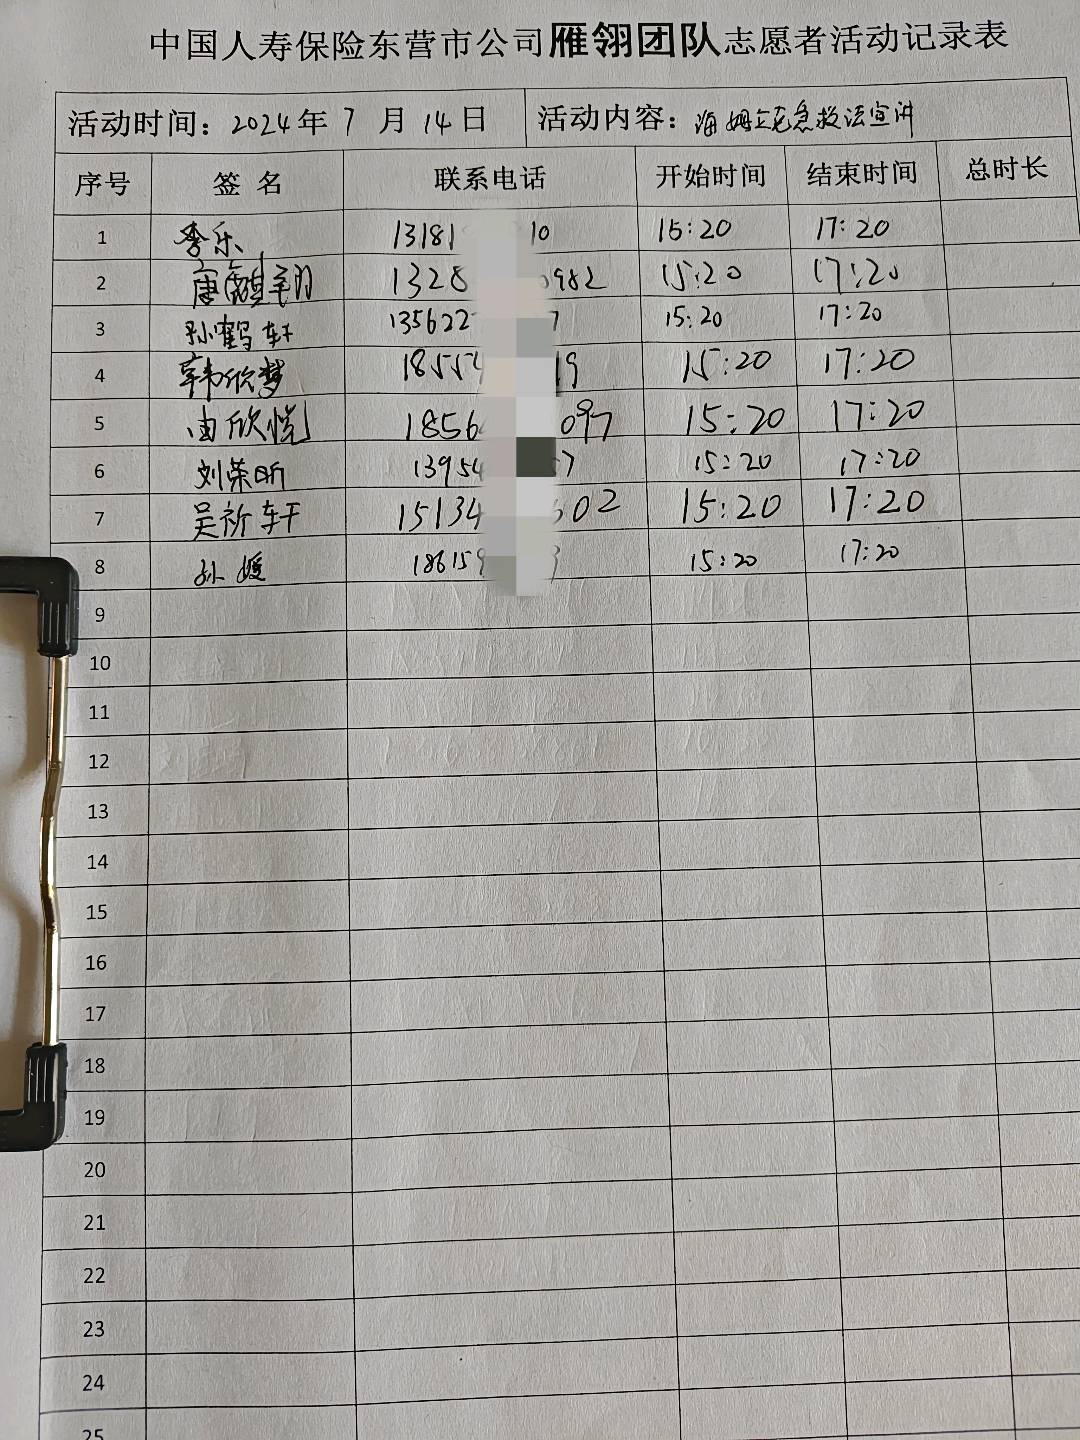 中国人寿保险东营市公司雁翎团队志愿者活动记录表
活动时间：2024年 7 月 14日 活动内容：海姆立克急救法宣讲
序号 签 名 联系电话 开始时间 结束时间 总时长
1 李乐 13181 10 15:20 17:20
2 唐 翔 1328 0982 15:20 17:20
3 孙鹤轩 1356227 7 15:20 17:20
4 韩欣梦 18554 19 15:20 17:20
5 由欣悦 1856 097 15:20 17:20
6 刘荣昕 13954 7 15:20 17:20
7 吴祈轩 15134 602 15:20 17:20
8 孙媛 18615 9 15:20 17:20
9
10
11
12
13
14
15
16
17
18
19
20
21
22
23
24
25